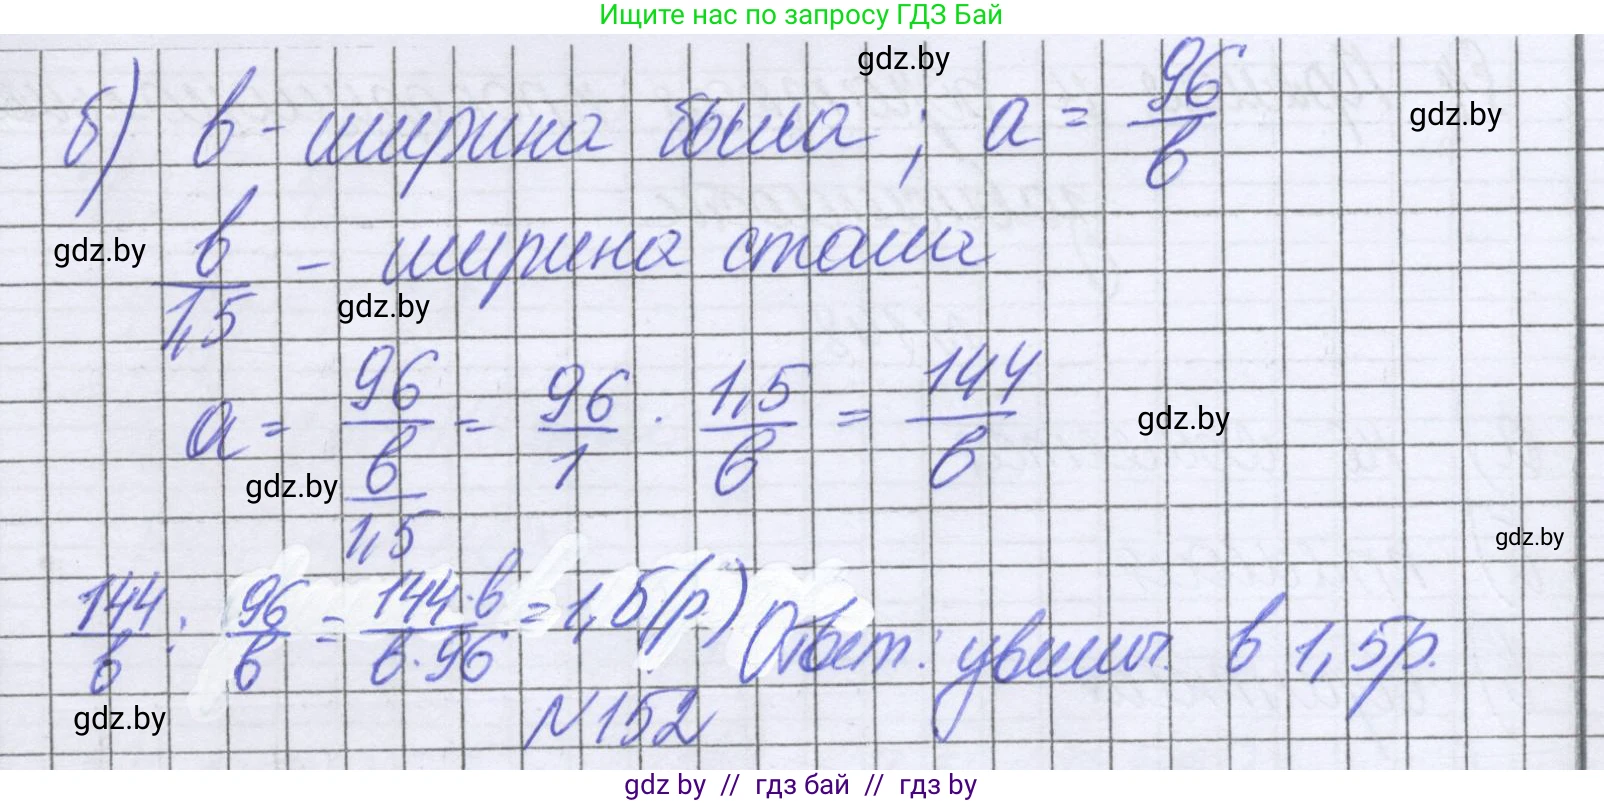 Ищите нас по запросу ГДЗ Бай
gdz.by
б) в - ширина была ; a = 96/в
gdz.by
gdz.by
в/1,5 - ширина стала
gdz.by
a = 96/(в/1,5) = 96/1 · 1,5/в = 144/в
gdz.by
gdz.by
gdz.by
144/в : 96/в = 144·в/в·96 = 1,5(р.) Ответ: увелич. в 1,5р.
gdz.by
N152
gdz.by // гдз бай // гдз by